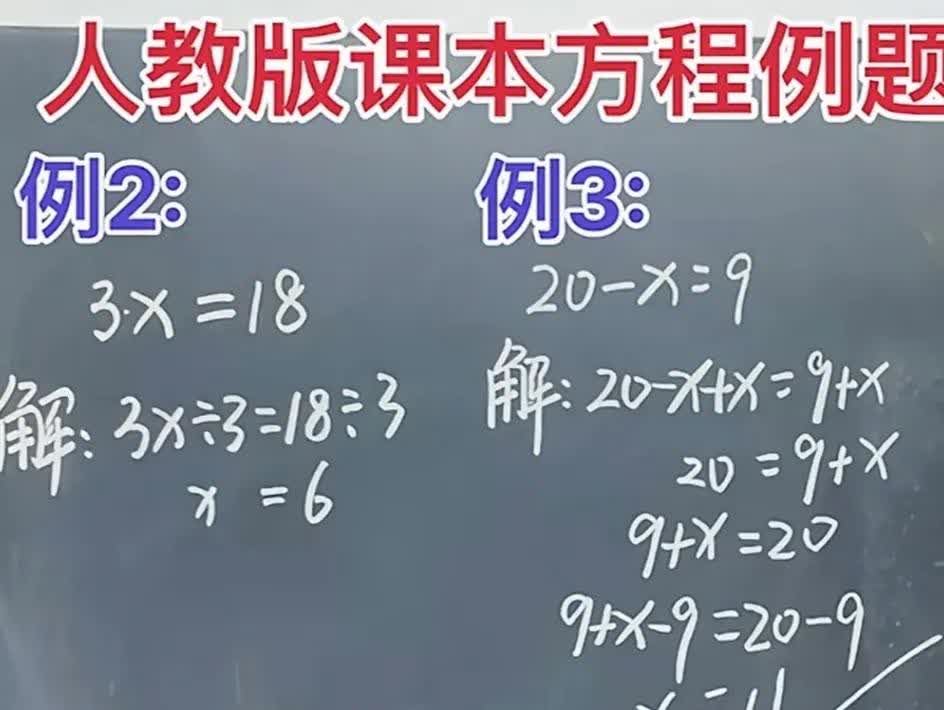 人教版课本方程例题
例2:
3·x=18
解:3x÷3=18÷3
x=6
例3:
20-x=9
解:20-x+x=9+x
20=9+x
9+x=20
9+x-9=20-9
x=11